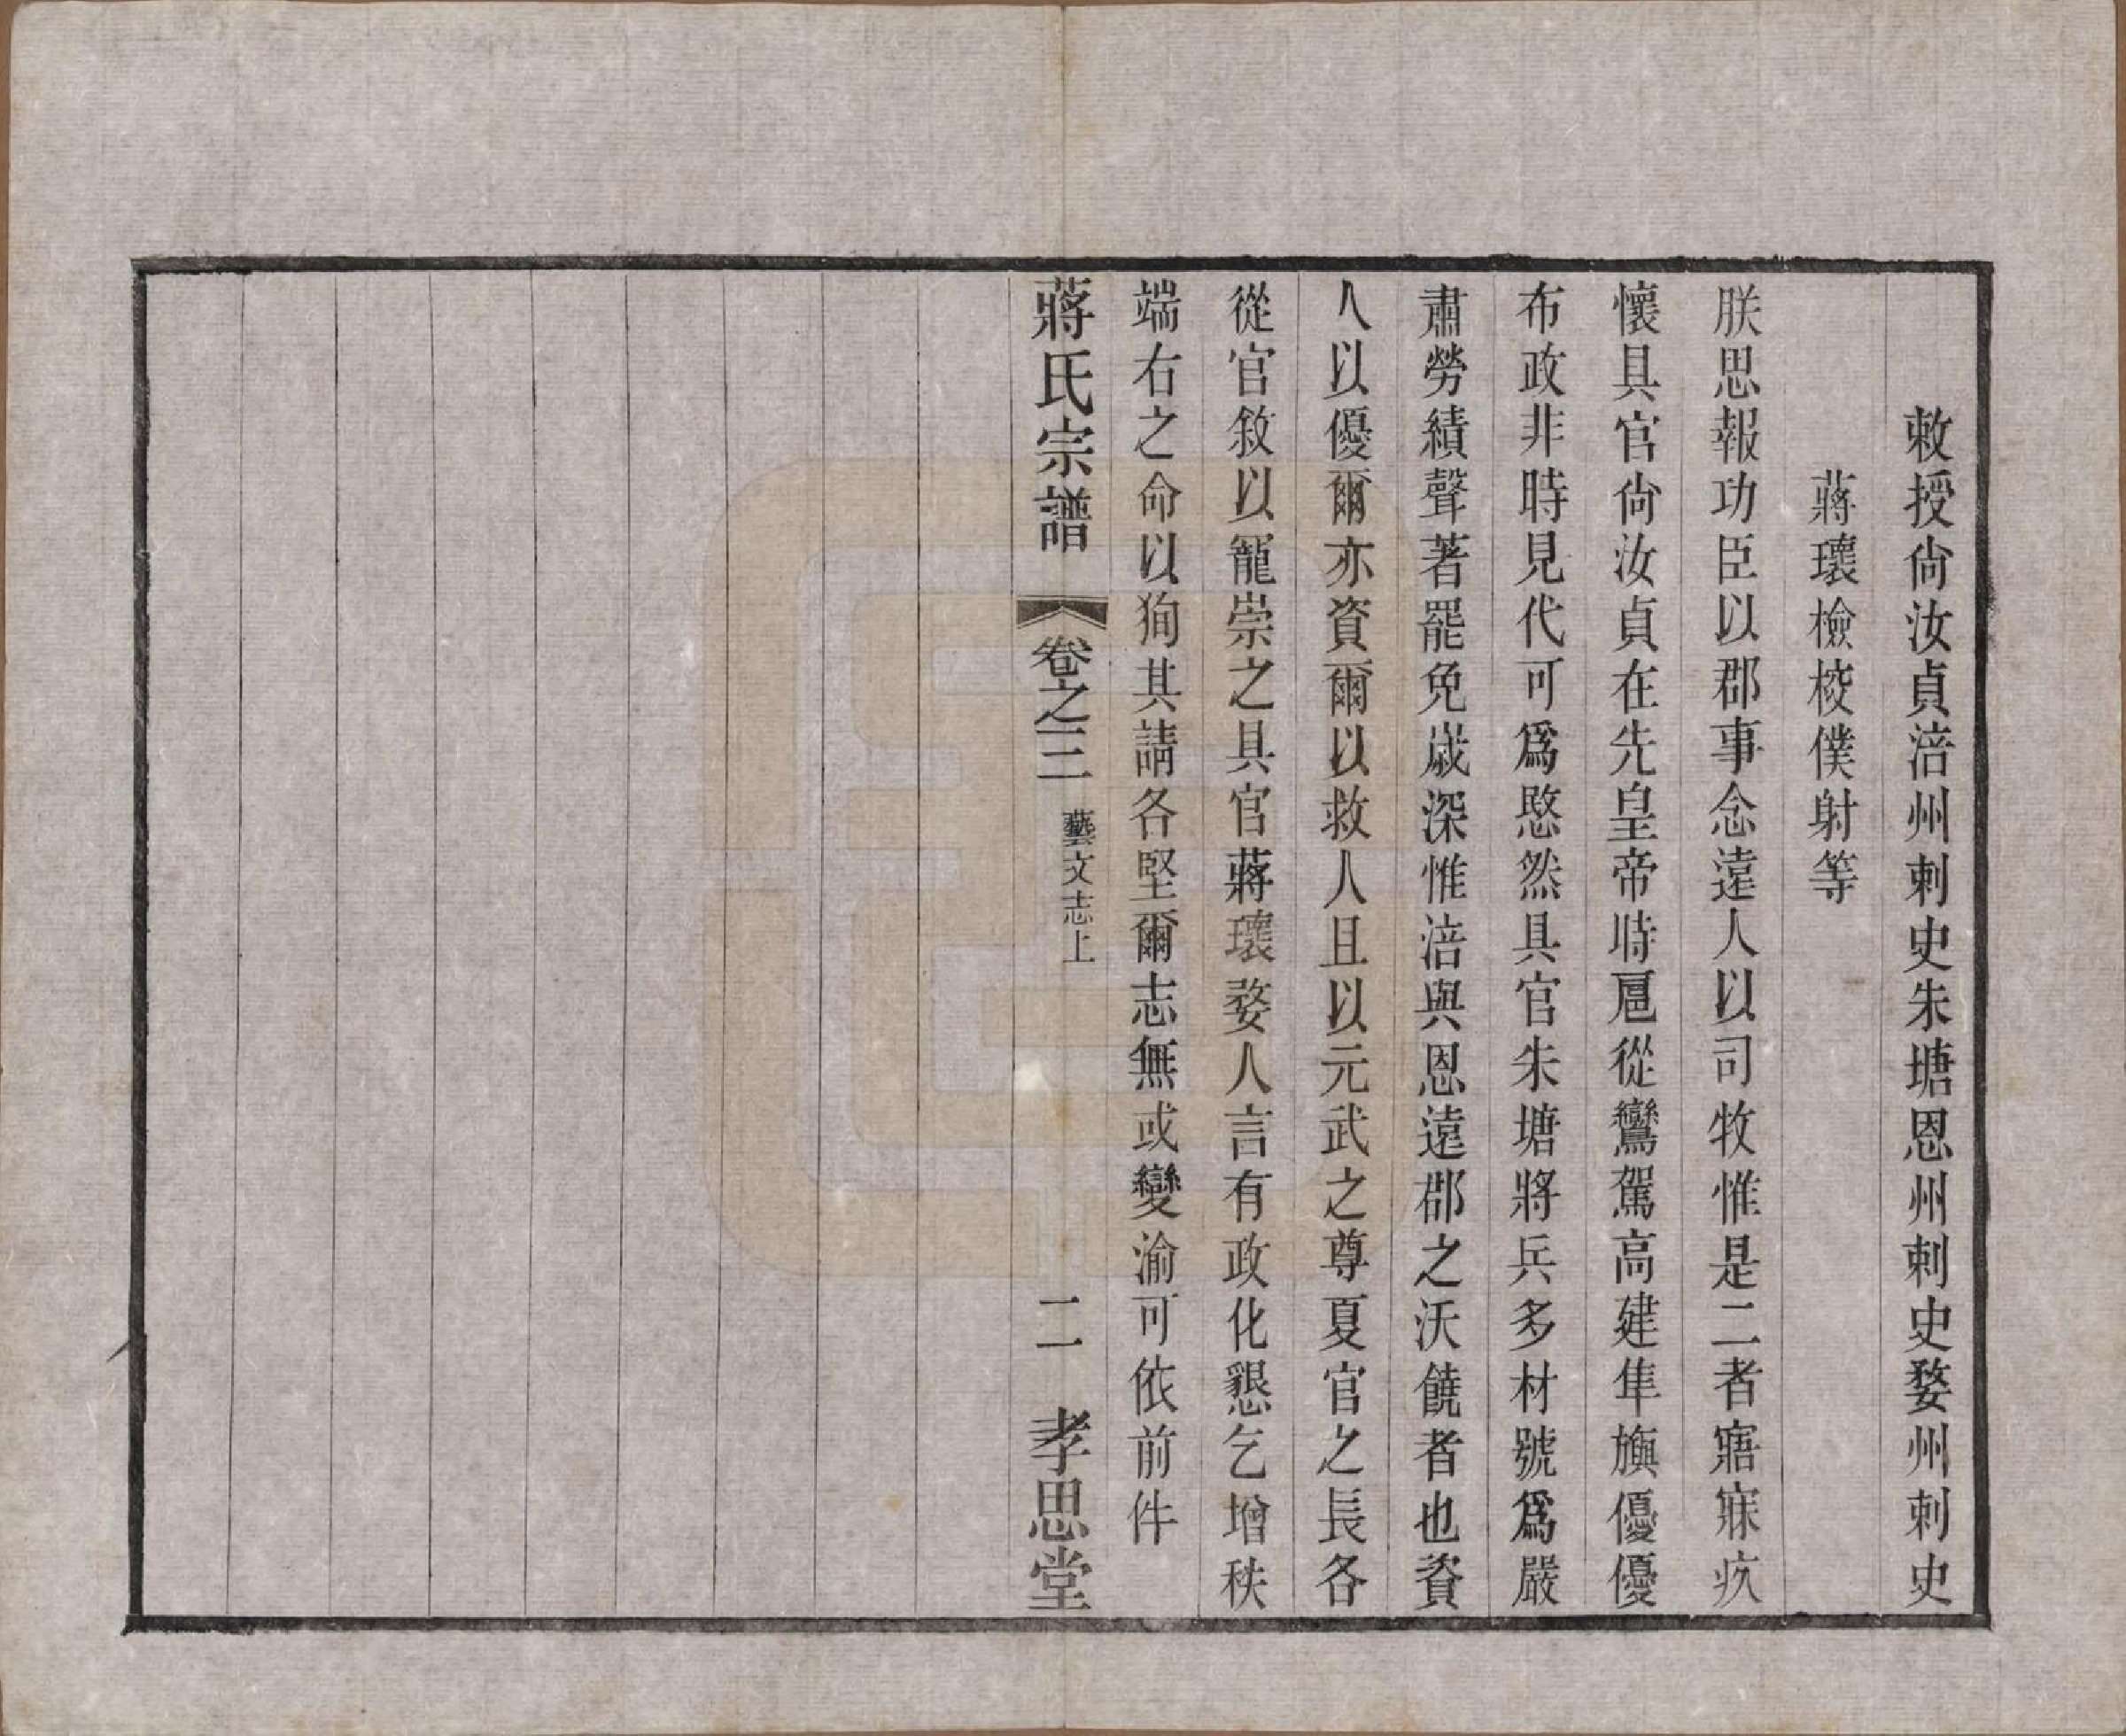 敕授尙汝貞涪州刺史朱塘恩州刺史婺州刺史
蔣瓌檢校僕射等
朕思報功臣以郡事念遠人以司牧惟是二者寤寐疚
懷具官尙汝貞在先皇帝時扈從鸞駕高建隼旟優優
布政非時見代可爲愍然具官朱塘將兵多材號爲嚴
肅勞績聲著罷免歲深惟涪與恩遠郡之沃饒者也資
人以優爾亦資爾以救人且以元武之尊夏官之長各
從官敘以寵崇之具官蔣瓌婺人言有政化懇乞增秩
端右之命以狥其請各堅爾志無或變渝可依前件
蔣氏宗譜 卷之三 藝文志上 二 孝思堂